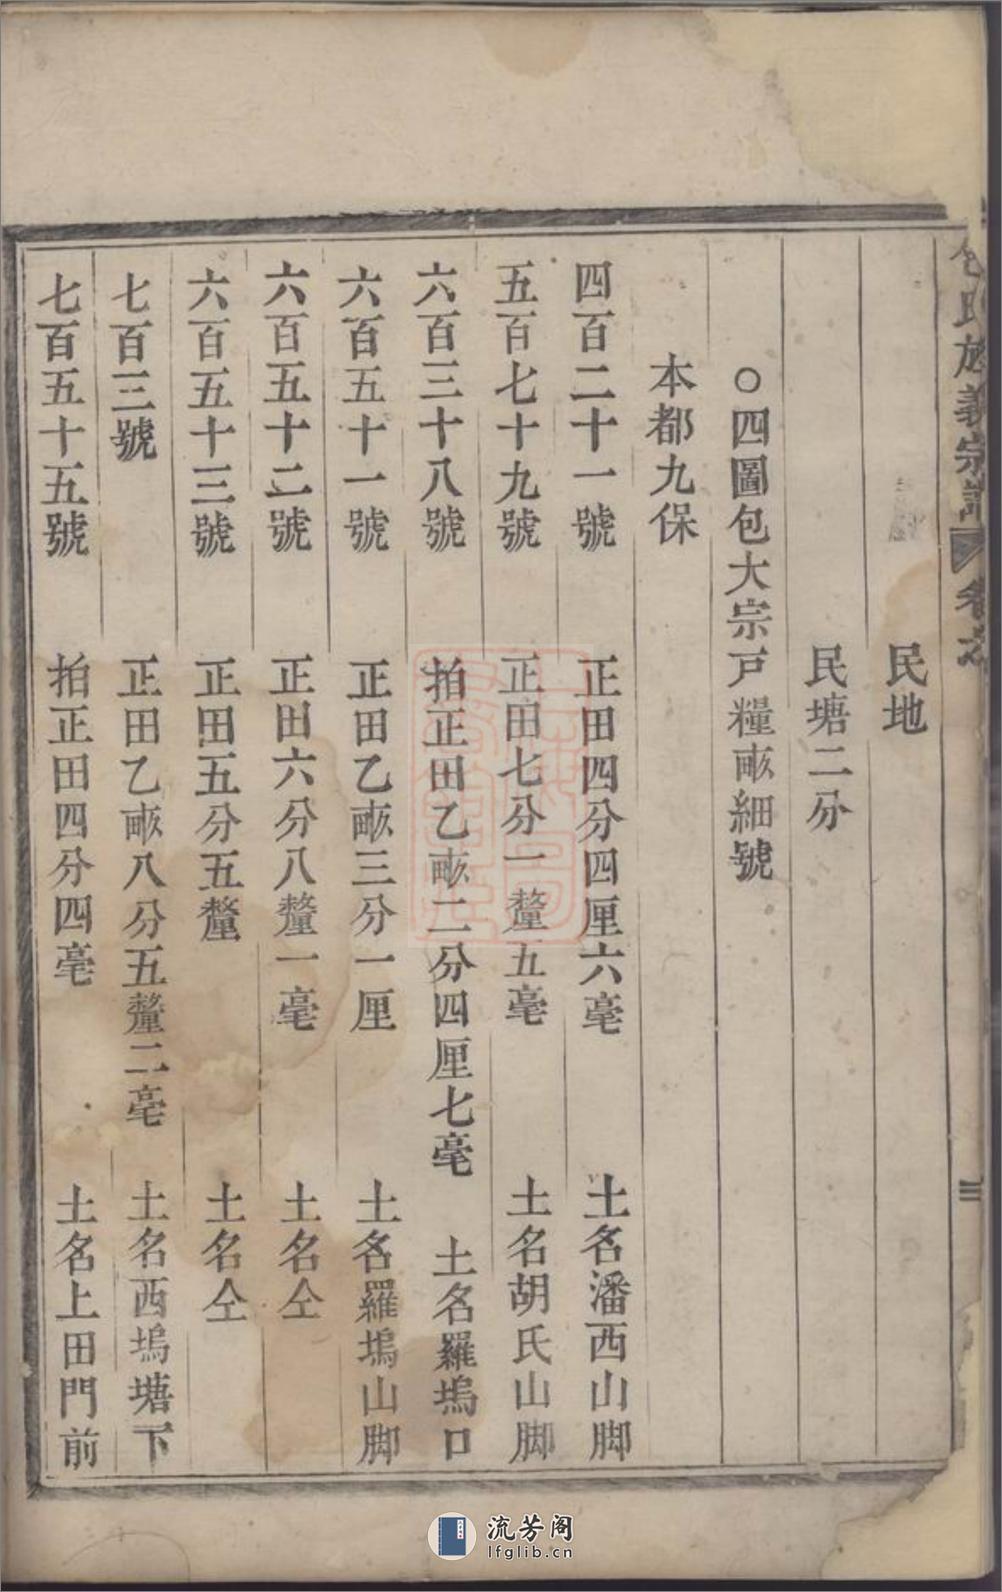 氏族義宗譜 卷之
民地
民塘二分
○四圖包大宗戸糧畝細號
本都九保
四百二十一號 正田四分四厘六毫 土名潘西山脚
五百七十九號 正田七分一釐五毫 土名胡氏山脚
六百三十八號 拍正田乙畝二分四厘七毫 土名羅塢口
六百五十一號 正田乙畝三分一厘 土名羅塢山脚
六百五十二號 正田六分八釐一毫 土名仝
六百五十三號 正田五分五釐 土名仝
七百三號 正田乙畝八分五釐二毫 土名西塢塘下
七百五十五號 拍正田四分四毫 土名上田門前
流芳阁
lfglib.cn